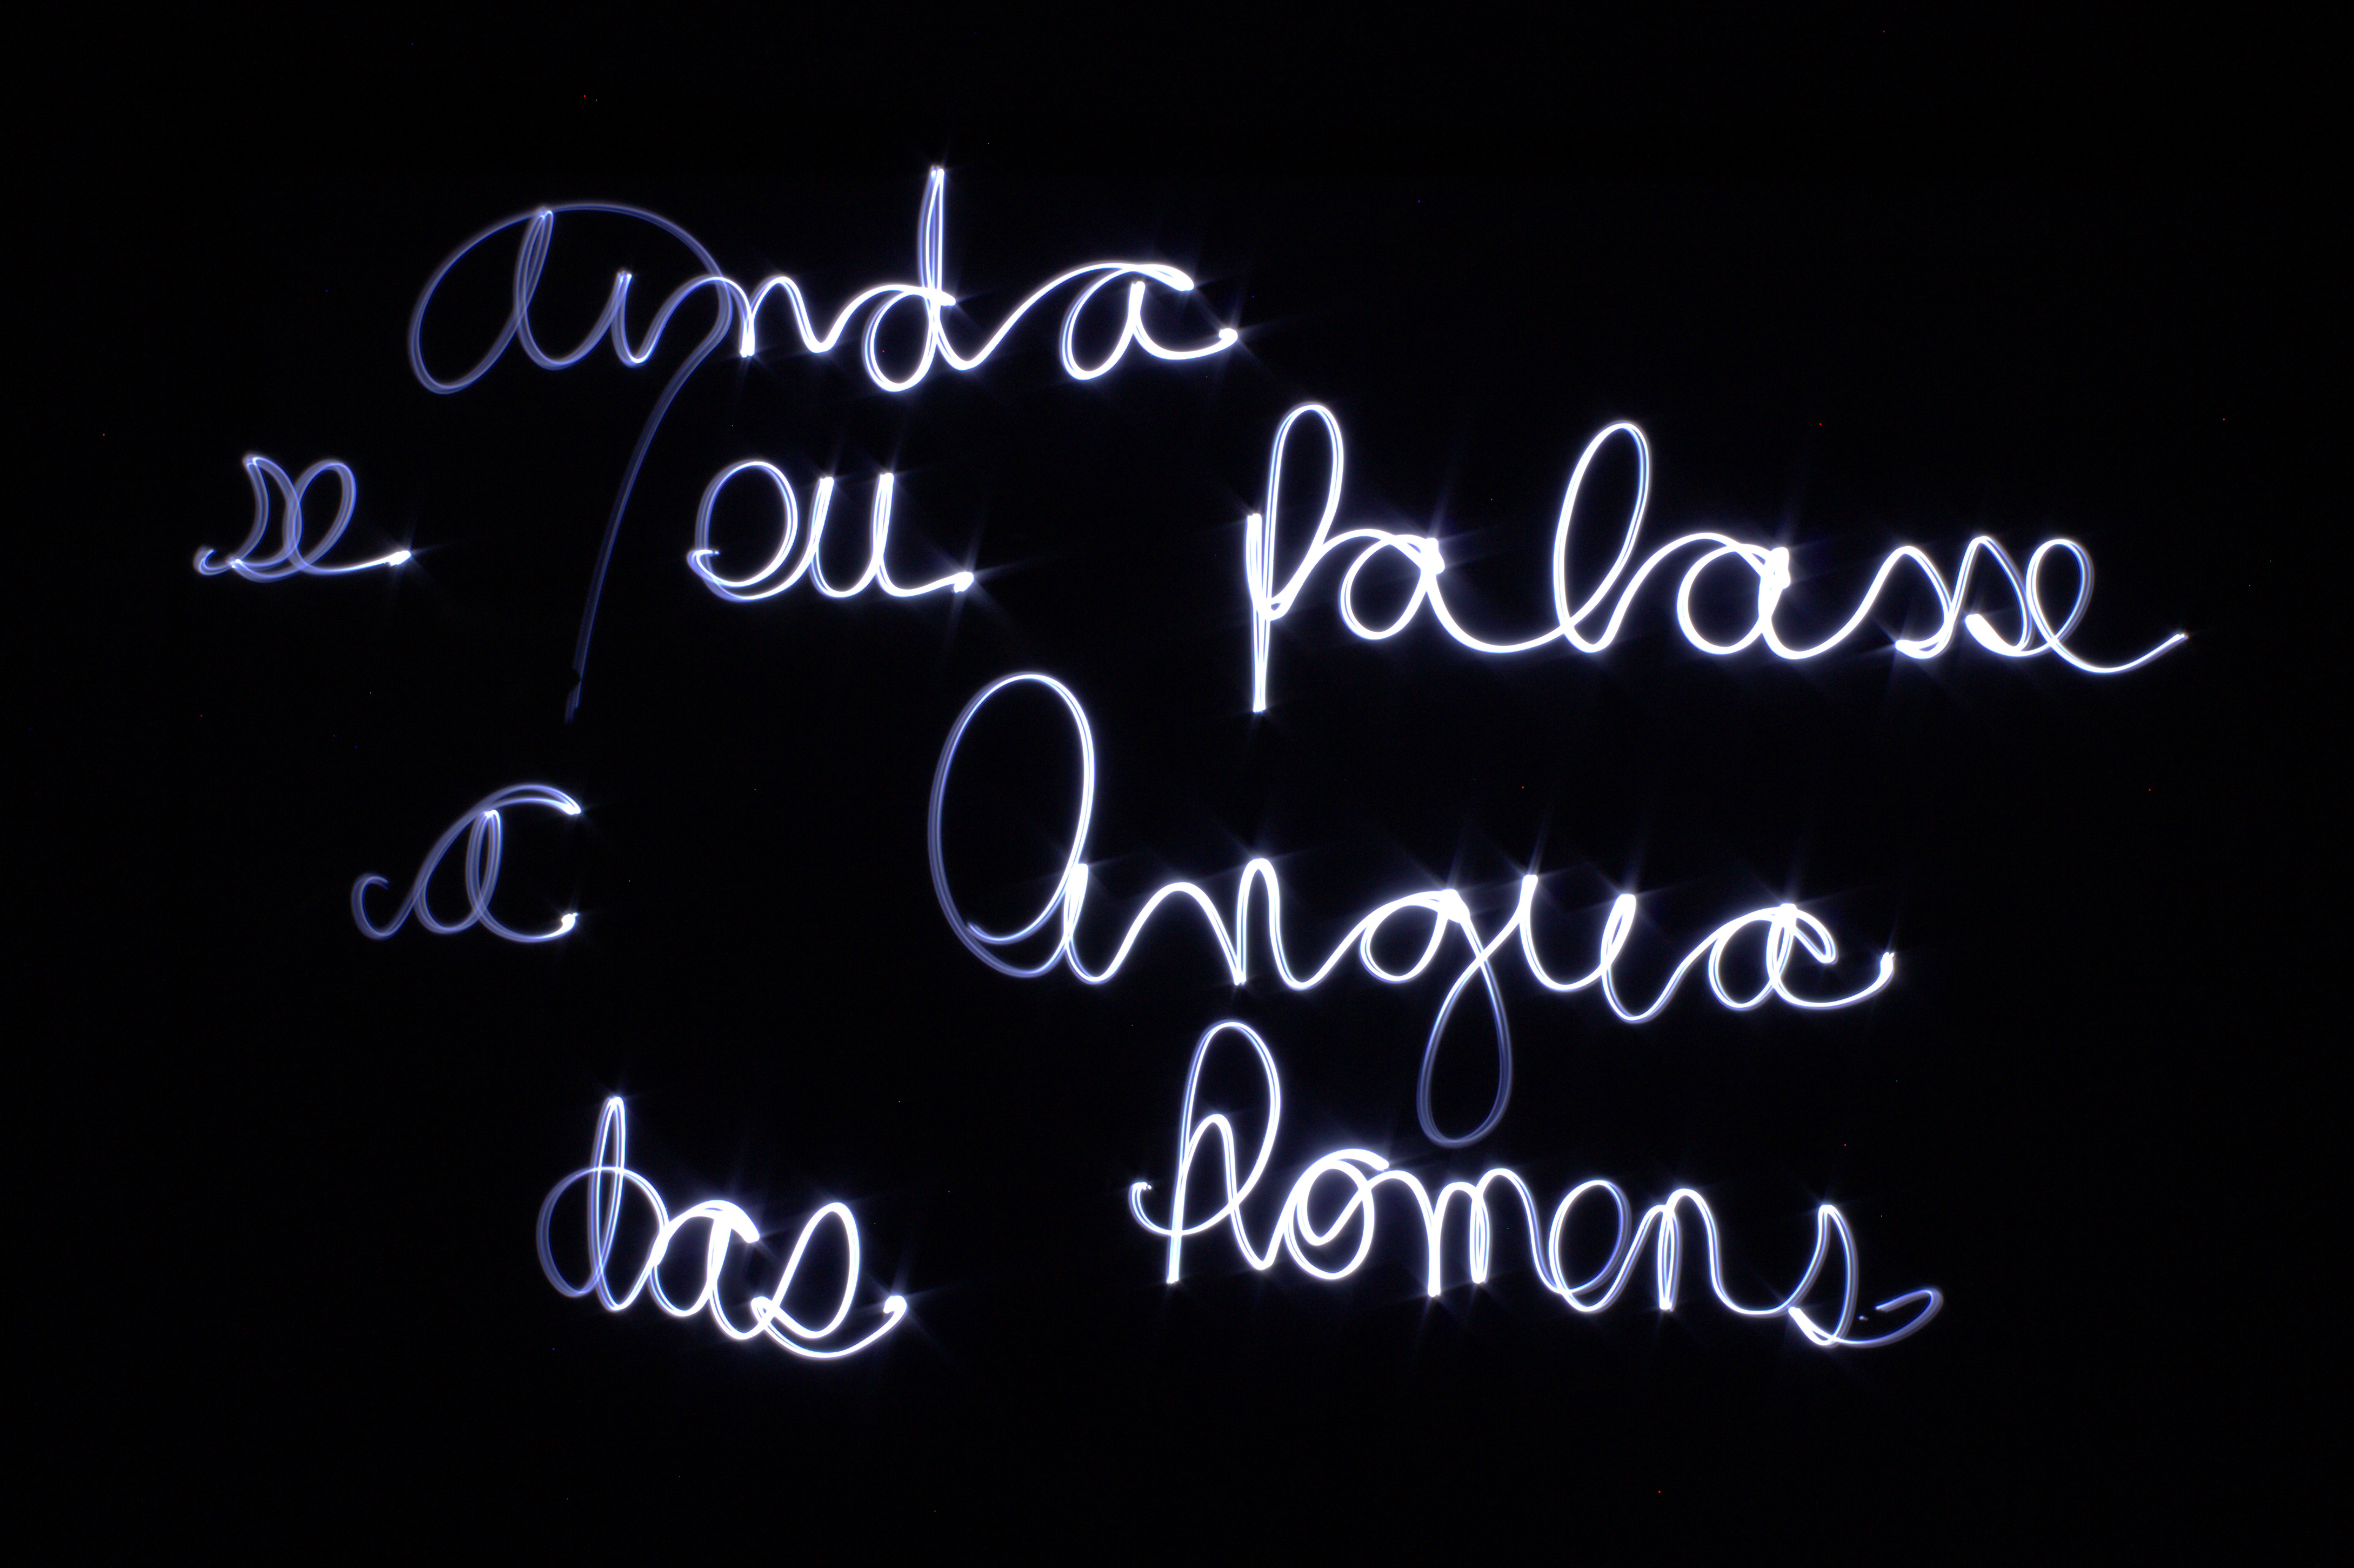 Ainda
se eu falasse
a língua
dos homens